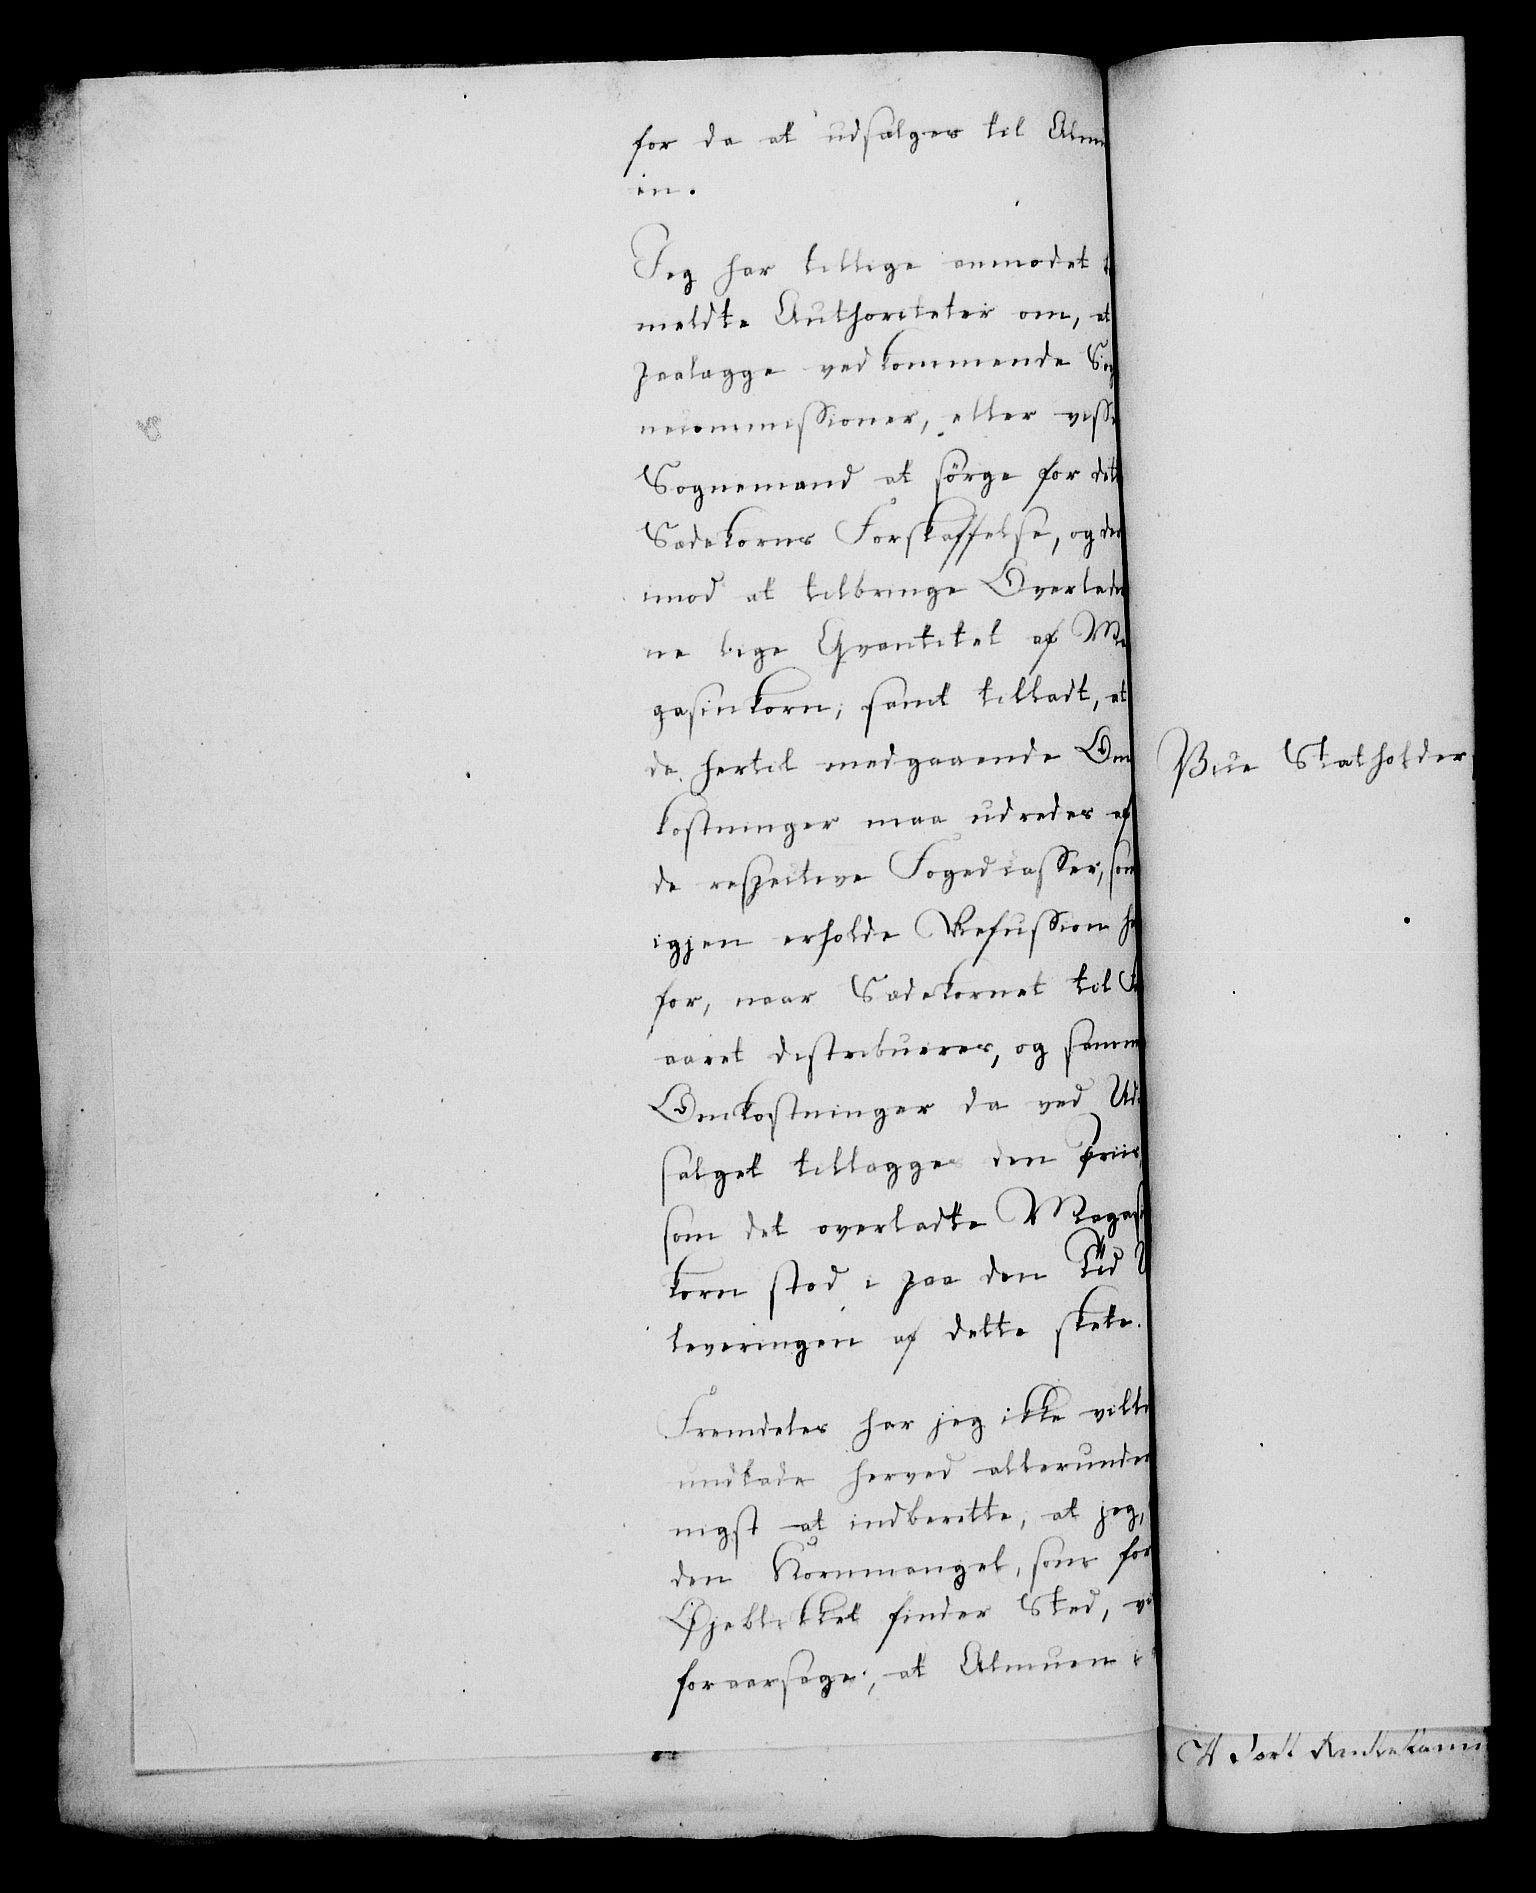 for da at udsælges til Alm
en.
Jeg har tillige anmodet
meldte Authoriteter om, at
paalægge vedkommende Sog
necommissioner, eller visse
Sognemænd at sörge for det
Sædekorns Forskaffelse, og der
imod at tilbringe Overlade
ne lige Qvantitet af Ma
gasinkorn; samt tilladt, at
de hertil medgaaende Om
kostninger maa udredes af
de respective Fogedcasser, som
igjen erholde Refussion he
for, naar Sædekornet til
aaret distribueres, og samme
Omkostninger da ved Ud
salget tillægges den Priis,
som det overladte Magasi
korn stod i paa den Tid
leveringen af dette skete.
Fremdeles har jeg ikke villet
undlade herved allerunder
nigst at indberette, at jeg,
den Kornmangel, som for
Öjeblikket finder Sted, vi
foraarsage, at Almuen i
Vice Statholder